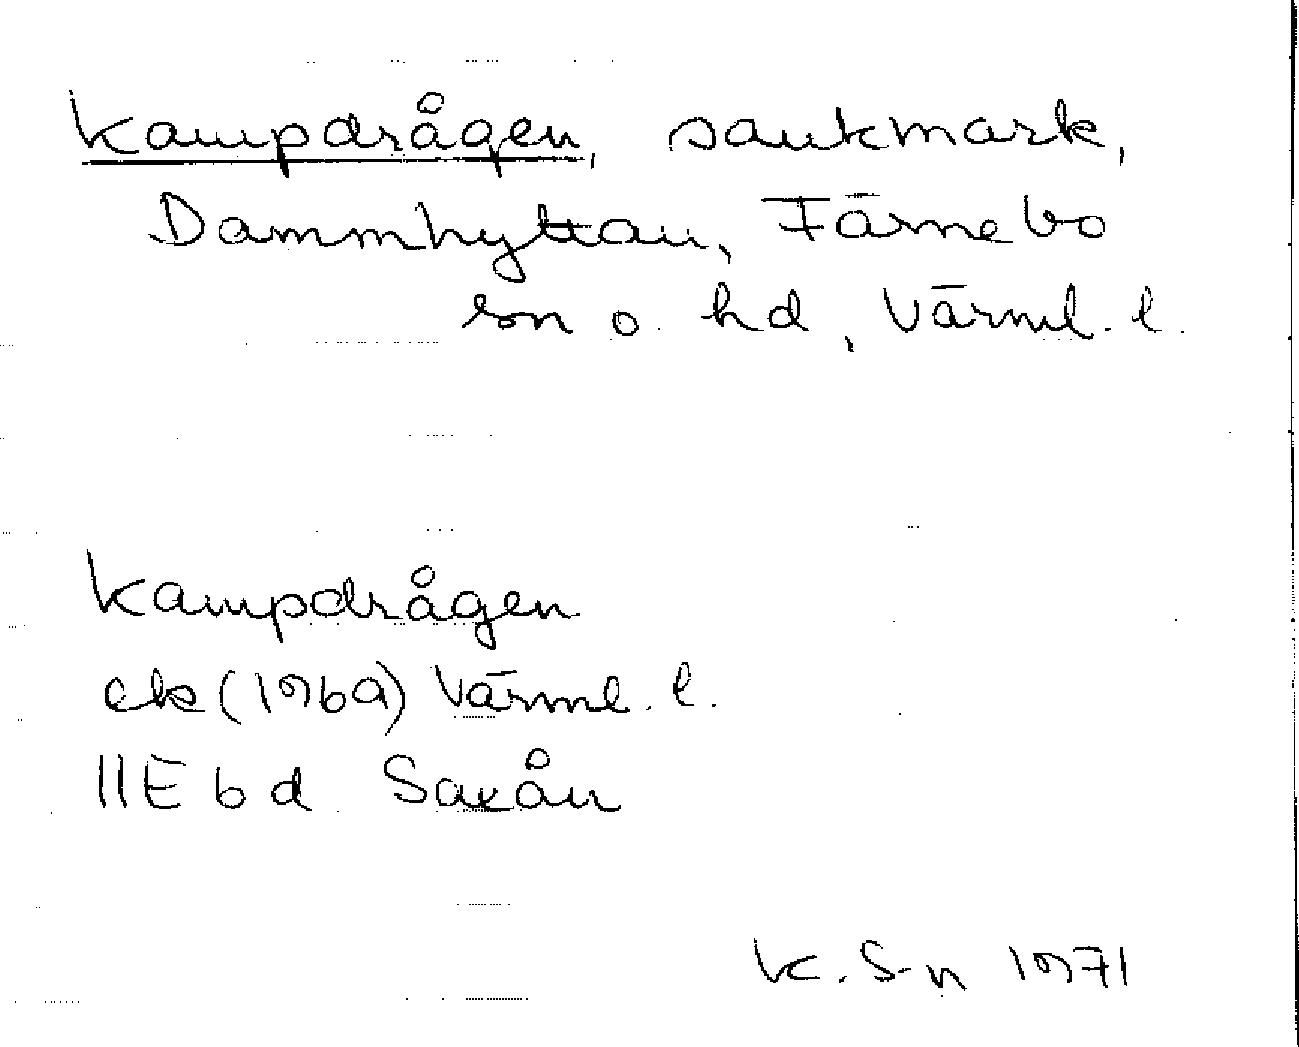 Kampdrågen, sankmark,
Dammhyttan, Färnebo
sn o. hd, Värml. l.
Kampdrågen
ek (1969) Värml. l.
11E b d Saxån
K. S-n 1971